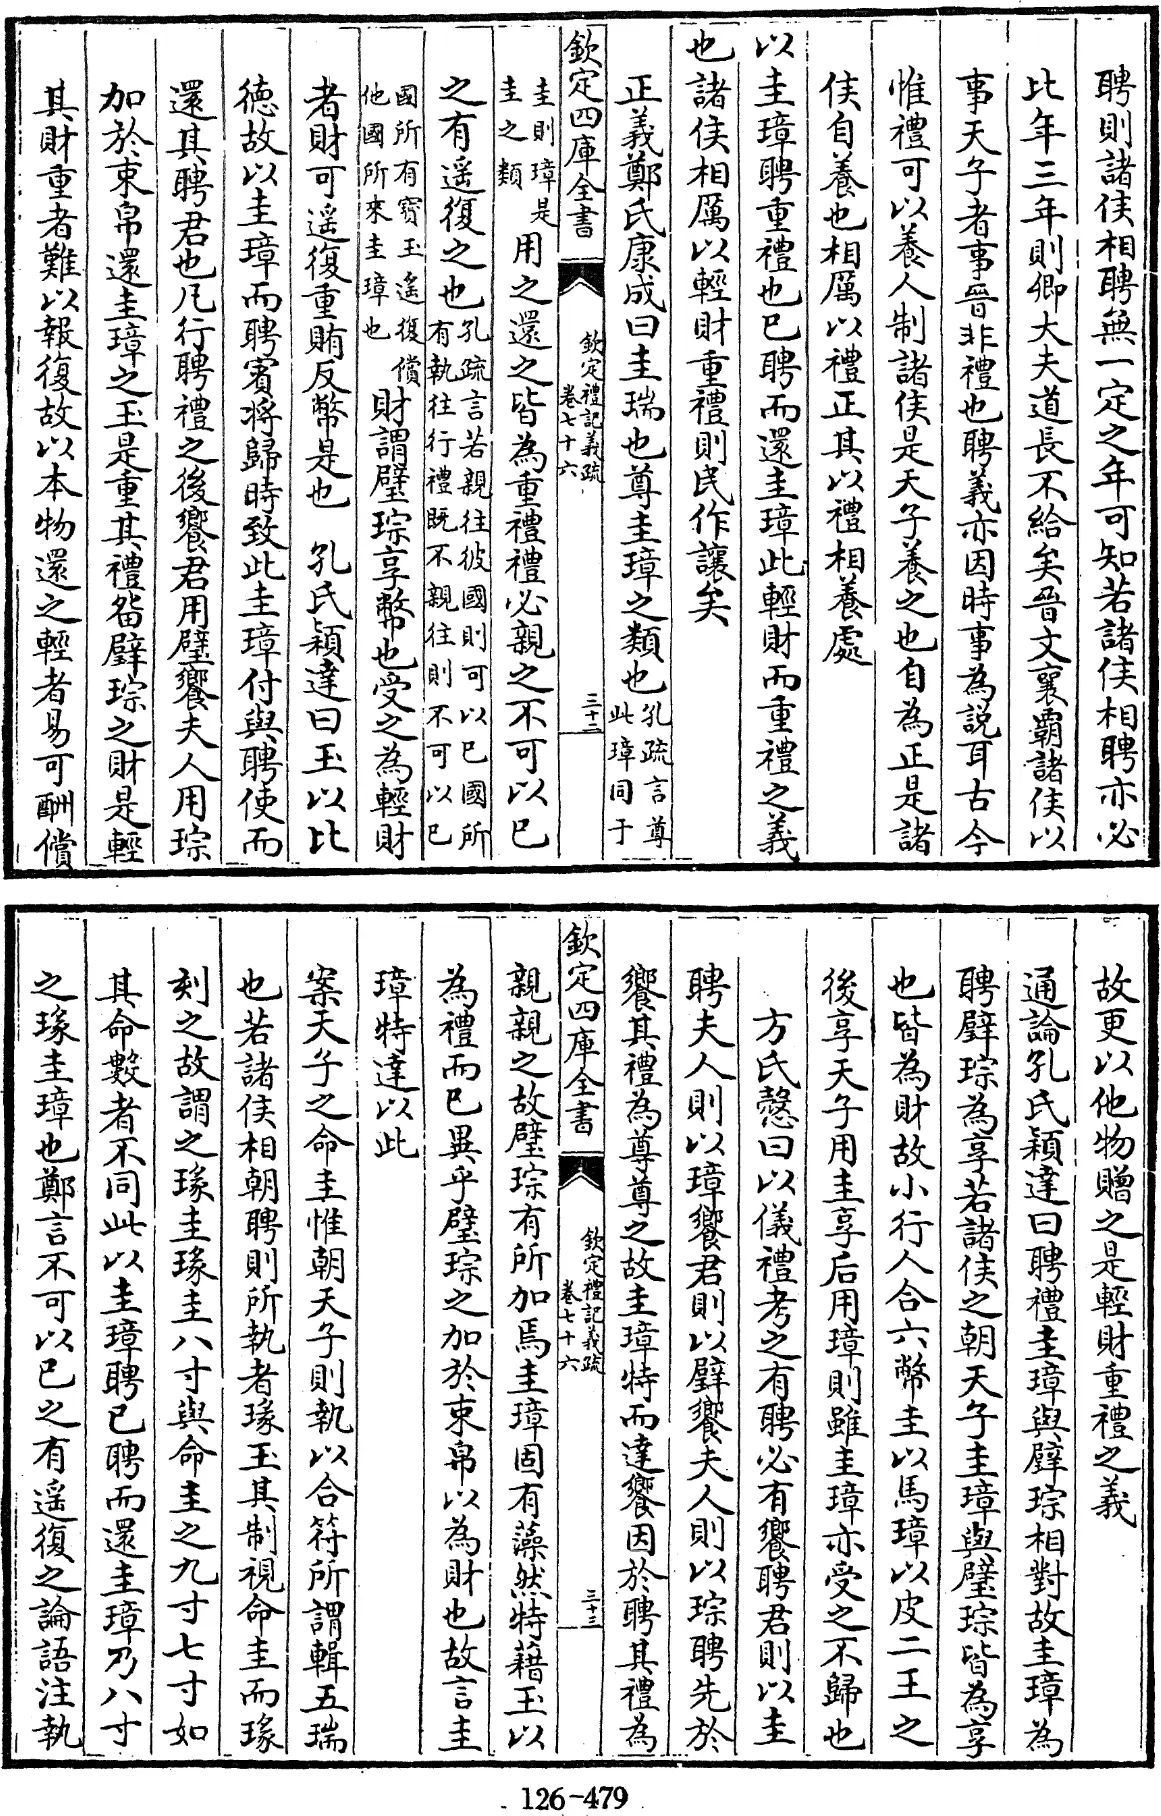 聘則諸侯相聘無一定之年可知若諸侯相聘亦必
比年三年則卿大夫道長不給矣晉文襄霸諸侯以
事天子者事晉非禮也聘義亦因時事為説耳古今
惟禮可以養人制諸侯是天子養之也自為正是諸
侯自養也相厲以禮正其以禮相養處
以圭璋聘重禮也已聘而還圭璋此輕財而重禮之義
也諸侯相厲以輕財重禮則民作讓矣
正義鄭氏康成曰圭瑞也尊圭璋之類也孔疏言尊此璋同于
欽定四庫全書
欽定禮記義疏
卷七十六
三十二
圭則璋是圭之類用之還之皆為重禮禮必親之不可以已
之有遥復之也孔疏言若親往彼國則可以已國所有執往行禮既不親往則不可以已
國所有寳玉遥復償他國所來圭璋也財謂璧琮享幣也受之為輕財
者財可遥復重賄反幣是也　孔氏穎達曰玉以比
徳故以圭璋而聘賓將歸時致此圭璋付與聘使而
還其聘君也凡行聘禮之後饗君用璧饗夫人用琮
加於束帛還圭璋之玉是重其禮畱璧琮之財是輕
其財重者難以報復故以本物還之輕者易可酬償
故更以他物贈之是輕財重禮之義
通論孔氏穎達曰聘禮圭璋與璧琮相對故圭璋為
聘璧琮為享若諸侯之朝天子圭璋與璧琮皆為享
也皆為財故小行人合六幣圭以馬璋以皮二王之
後享天子用圭享后用璋則雖圭璋亦受之不歸也
方氏慤曰以儀禮考之有聘必有饗聘君則以圭
聘夫人則以璋饗君則以璧饗夫人則以琮聘先於
饗其禮為尊尊之故圭璋特而達饗因於聘其禮為
欽定四庫全書
欽定禮記義疏
卷七十六
三十三
親親之故璧琮有所加焉圭璋固有藻然特藉玉以
為禮而已異乎璧琮之加於束帛以為財也故言圭
璋特達以此
案天子之命圭惟朝天子則執以合符所謂輯五瑞
也若諸侯相朝聘則所執者瑑玉其制視命圭而瑑
刻之故謂之瑑圭瑑圭八寸與命圭之九寸七寸如
其命數者不同此以圭璋聘已聘而還圭璋乃八寸
之瑑圭璋也鄭言不可以已之有遥復之論語注執
126-479